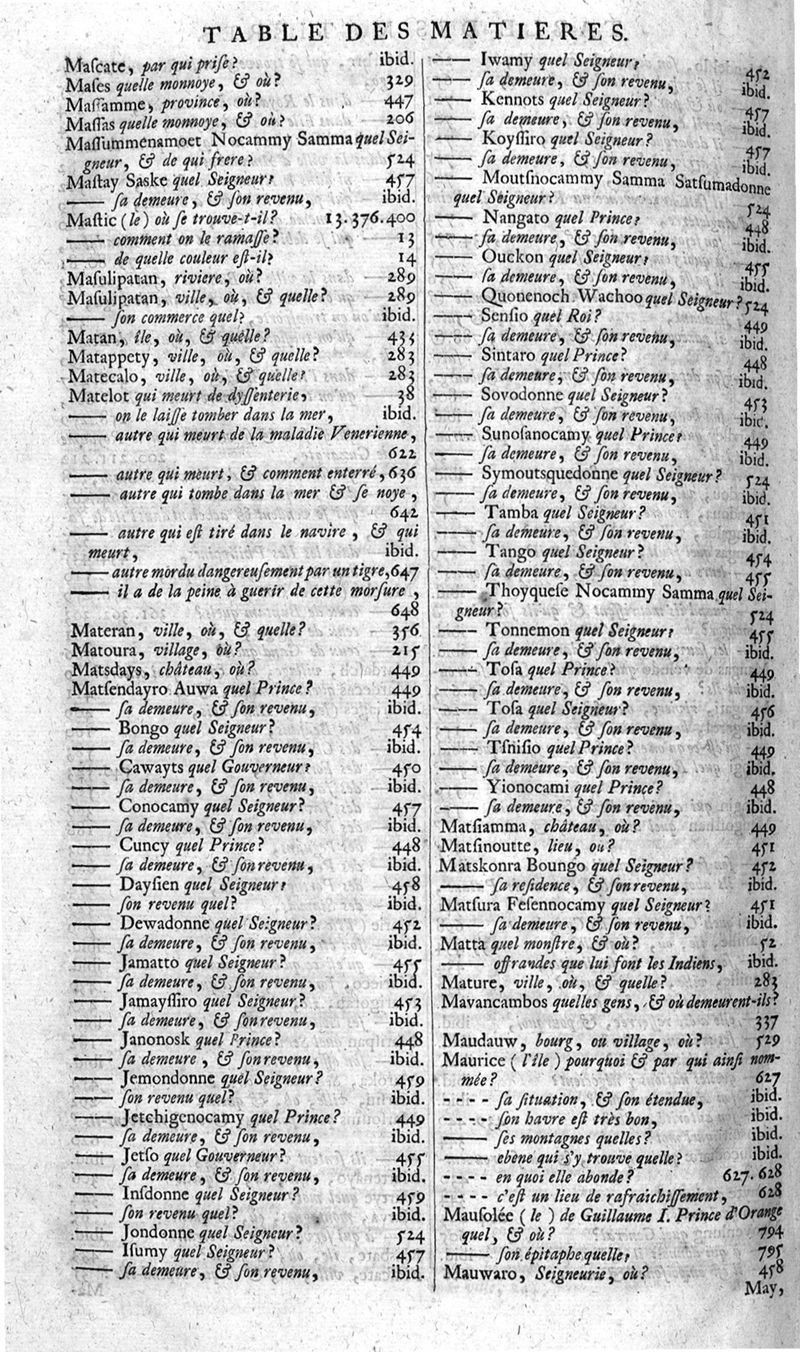 TABLE DES MATIERES.
Maſcate, par qui priſe? ibid.
Maſes quelle monnoye, & où? 329
Maſſamme, province, où? 447
Maſſas quelle monnoye, & où? 206
Maſſummenamoet Nocammy Samma quel Sei-
gneur, & de qui frere? 524
Maſtay Saske quel Seigneur? 457
—— ſa demeure, & ſon revenu, ibid.
Maſtic (le) où ſe trouve-t-il? 13.376.400
—— comment on le ramaſſe? 13
—— de quelle couleur eſt-il? 14
Maſulipatan, riviere, où? 289
Maſulipatan, ville, où, & quelle? 289
—— ſon commerce quel? ibid.
Matan, île, où, & quelle? 435
Matappety, ville, où, & quelle? 283
Matecalo, ville, où, & quelle? 283
Matelot qui meurt de dyſſenterie, 38
—— on le laiſſe tomber dans la mer, ibid.
—— autre qui meurt de la maladie Venerienne,
622
—— autre qui meurt, & comment enterré, 636
—— autre qui tombe dans la mer & ſe noye,
642
—— autre qui eſt tiré dans le navire, & qui
meurt, ibid.
—— autre mordu dangereuſement par un tigre, 647
—— il a de la peine à guerir de cette morſure,
648
Materan, ville, où, & quelle? 356
Matoura, village, où? 215
Matsdays, château, où? 449
Matſendayro Auwa quel Prince? 449
—— ſa demeure, & ſon revenu, ibid.
—— Bongo quel Seigneur? 454
—— ſa demeure, & ſon revenu, ibid.
—— Cawayts quel Gouverneur? 450
—— ſa demeure, & ſon revenu, ibid.
—— Conocamy quel Seigneur? 457
—— ſa demeure, & ſon revenu, ibid.
—— Cuncy quel Prince? 448
—— ſa demeure, & ſon revenu, ibid.
—— Dayſien quel Seigneur? 458
—— ſon revenu quel? ibid.
—— Dewadonne quel Seigneur? 452
—— ſa demeure, & ſon revenu, ibid.
—— Jamatto quel Seigneur? 455
—— ſa demeure, & ſon revenu, ibid.
—— Jamayſſiro quel Seigneur? 453
—— ſa demeure, & ſon revenu, ibid.
—— Janonosk quel Prince? 448
—— ſa demeure, & ſon revenu, ibid.
—— Jemondonne quel Seigneur? 459
—— ſon revenu quel? ibid.
—— Jetchigenocamy quel Prince? 449
—— ſa demeure, & ſon revenu, ibid.
—— Jetſo quel Gouverneur? 455
—— ſa demeure, & ſon revenu, ibid.
—— Inſdonne quel Seigneur? 459
—— ſon revenu quel? ibid.
—— Jondonne quel Seigneur? 524
—— Iſumy quel Seigneur? 457
—— ſa demeure, & ſon revenu, ibid.
—— Iwamy quel Seigneur? 452
—— ſa demeure, & ſon revenu, ibid.
—— Kennots quel Seigneur? 457
—— ſa demeure, & ſon revenu, ibid.
—— Koyſſiro quel Seigneur? 457
—— ſa demeure, & ſon revenu, ibid.
—— Moutſnocammy Samma Satſumadonne
quel Seigneur? 524
—— Nangato quel Prince? 448
—— ſa demeure, & ſon revenu, ibid.
—— Ouckon quel Seigneur? 455
—— ſa demeure, & ſon revenu, ibid.
—— Quonenoch Wachoo quel Seigneur? 524
—— Senſio quel Roi? 449
—— ſa demeure, & ſon revenu, ibid.
—— Sintaro quel Prince? 448
—— ſa demeure, & ſon revenu, ibid.
—— Sovodonne quel Seigneur? 453
—— ſa demeure, & ſon revenu, ibic.
—— Sunoſanocamy quel Prince? 449
—— ſa demeure, & ſon revenu, ibid.
—— Symoutsquedonne quel Seigneur? 524
—— ſa demeure, & ſon revenu, ibid.
—— Tamba quel Seigneur? 451
—— ſa demeure, & ſon revenu, ibid.
—— Tango quel Seigneur? 454
—— ſa demeure, & ſon revenu, 455
—— Thoyqueſe Nocammy Samma quel Sei-
gneur? 524
—— Tonnemon quel Seigneur? 455
—— ſa demeure, & ſon revenu, ibid.
—— Toſa quel Prince? 449
—— ſa demeure, & ſon revenu, ibid.
—— Toſa quel Seigneur? 456
—— ſa demeure, & ſon revenu, ibid.
—— Tſniſio quel Prince? 449
—— ſa demeure, & ſon revenu, ibid.
—— Yionocami quel Prince? 448
—— ſa demeure, & ſon revenu, ibid.
Matſiamma, château, où? 449
Matſinoutte, lieu, où? 451
Matskonra Boungo quel Seigneur? 452
—— ſa reſidence, & ſon revenu, ibid.
Matſura Feſennocamy quel Seigneur? 451
—— ſa demeure, & ſon revenu, ibid.
Matta quel monſtre, & où? 52
—— offrandes que lui font les Indiens, ibid.
Mature, ville, où, & quelle? 283
Mavancambos quelles gens, & où demeurent-ils?
337
Maudauw, bourg, ou village, où? 529
Maurice (l'île) pourquoi & par qui ainſi nom-
mée? 627
- - - - ſa ſituation, & ſon étendue, ibid.
- - - - ſon havre eſt très bon, ibid.
—— ſes montagnes quelles? ibid.
—— ebene qui s'y trouve quelle? ibid.
- - - - en quoi elle abonde? 627.628
- - - - c'eſt un lieu de rafraichiſſement, 628
Mauſolée (le) de Guillaume I. Prince d'Orange
quel, & où? 794
—— ſon épitaphe quelle? 795
Mauwaro, Seigneurie, où? 458
May,